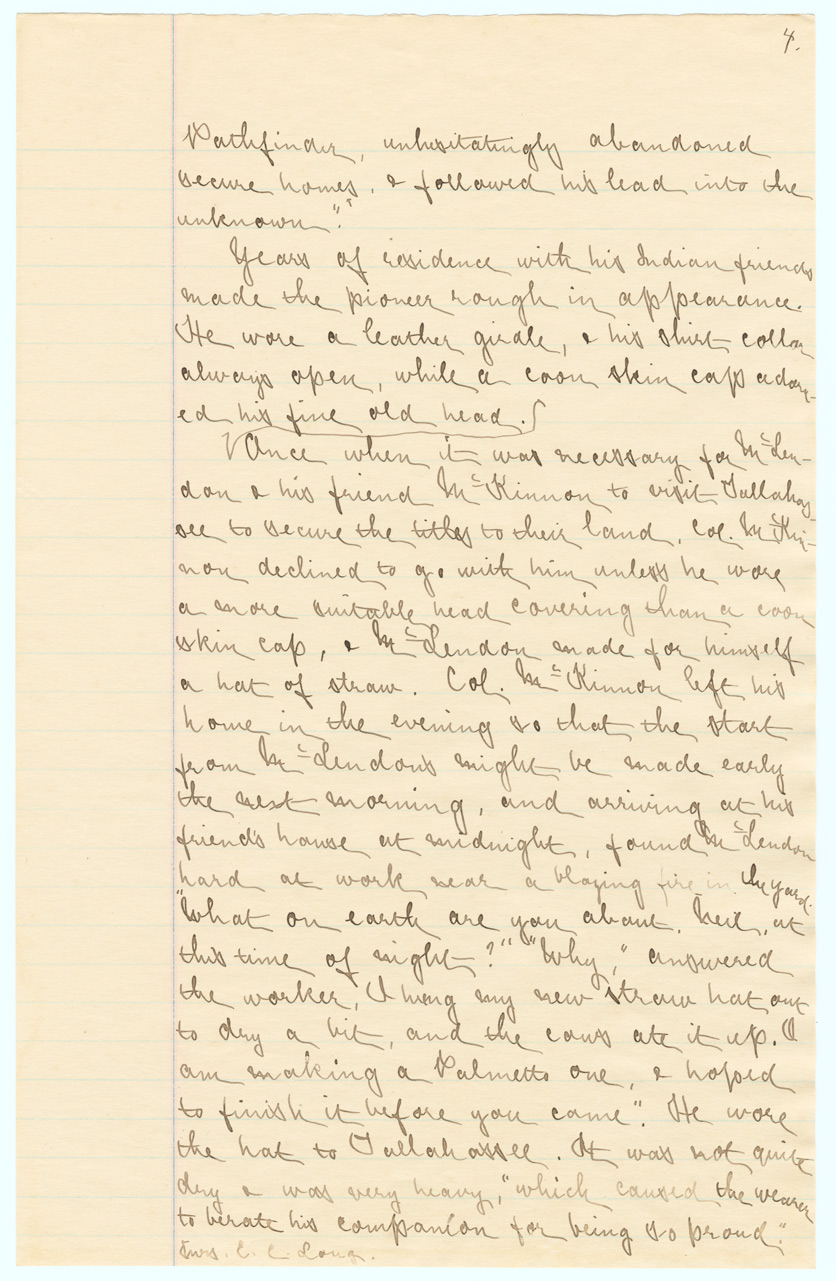 4.
Pathfinder, unhesitatingly abandoned
secure homes, & followed his lead into the
unknown".
Years of residence with his Indian friends
made the pioneer rough in appearance.
He wore a leather girdle, & his shirt collar
always open, while a coon skin cap adorn-
ed his fine old head.
Once when it was necessary for McLen-
don & his friend McKinnon to visit Tallahas-
see to secure the titles to their land, Col. McKin-
non declined to go with him unless he wore
a more suitable head covering than a coon
skin cap, & McLendon made for himself
a hat of straw. Col. McKinnon left his
home in the evening so that the start
from McLendon's might be made early
the next morning, and arriving at his
friend's house at midnight, found McLendon
hard at work near a blazing fire in the yard.
"What on earth are you about, Neil, at
this time of night?" "Why," answered
the worker, "I hung my new straw hat out
to dry a bit, and the cows ate it up. I
am making a Palmetto one, & hoped
to finish it before you came". He wore
the hat to Tallahassee. It was not quite
dry & was very heavy, "which caused the wearer
to berate his companion for being so proud."
Mrs. C. C. Long.